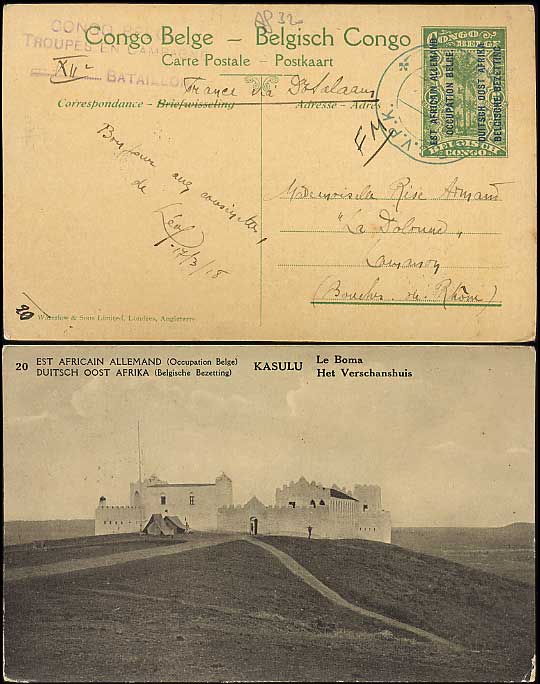 CONGO BELGE
TROUPES EN CAMPAGNE
XIIe BATAILLON
AP 32
Congo Belge – Belgisch Congo
Carte Postale – Postkaart
France via D'Salaam
Correspondance – Briefwisseling
Adresse – Adres
CONGO BELGE
EST AFRICAIN ALLEMAND
OCCUPATION BELGE
DUITSCH OOST AFRIKA
BELGISCHE BEZETTING
BELGISCH CONGO
V.P.K.
FM
Bonjour aux
de
Léon
17/3/18
Mademoiselle Rose Armand
"La
(Bouches du Rhône)
20
Waterlow & Sons Limited, Londres, Angleterre.
20 EST AFRICAIN ALLEMAND (Occupation Belge)
DUITSCH OOST AFRIKA (Belgische Bezetting)
KASULU
Le Boma
Het Verschanshuis